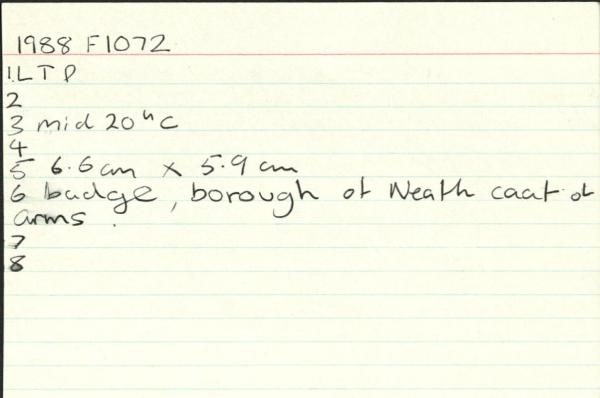 1988 F1072
1 L T P
2
3 mid 20th C
4
5 6.6cm x 5.9cm
6 badge, borough of Neath coat of
arms.
7
8